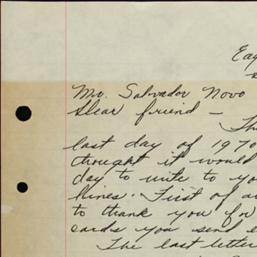 Eag
Mr. Salvador Novo
Dear friend -
Th
last day of 1970
thought it would
day to write to yo
lines. First of a
to thank you for
cards you send e
The last letter